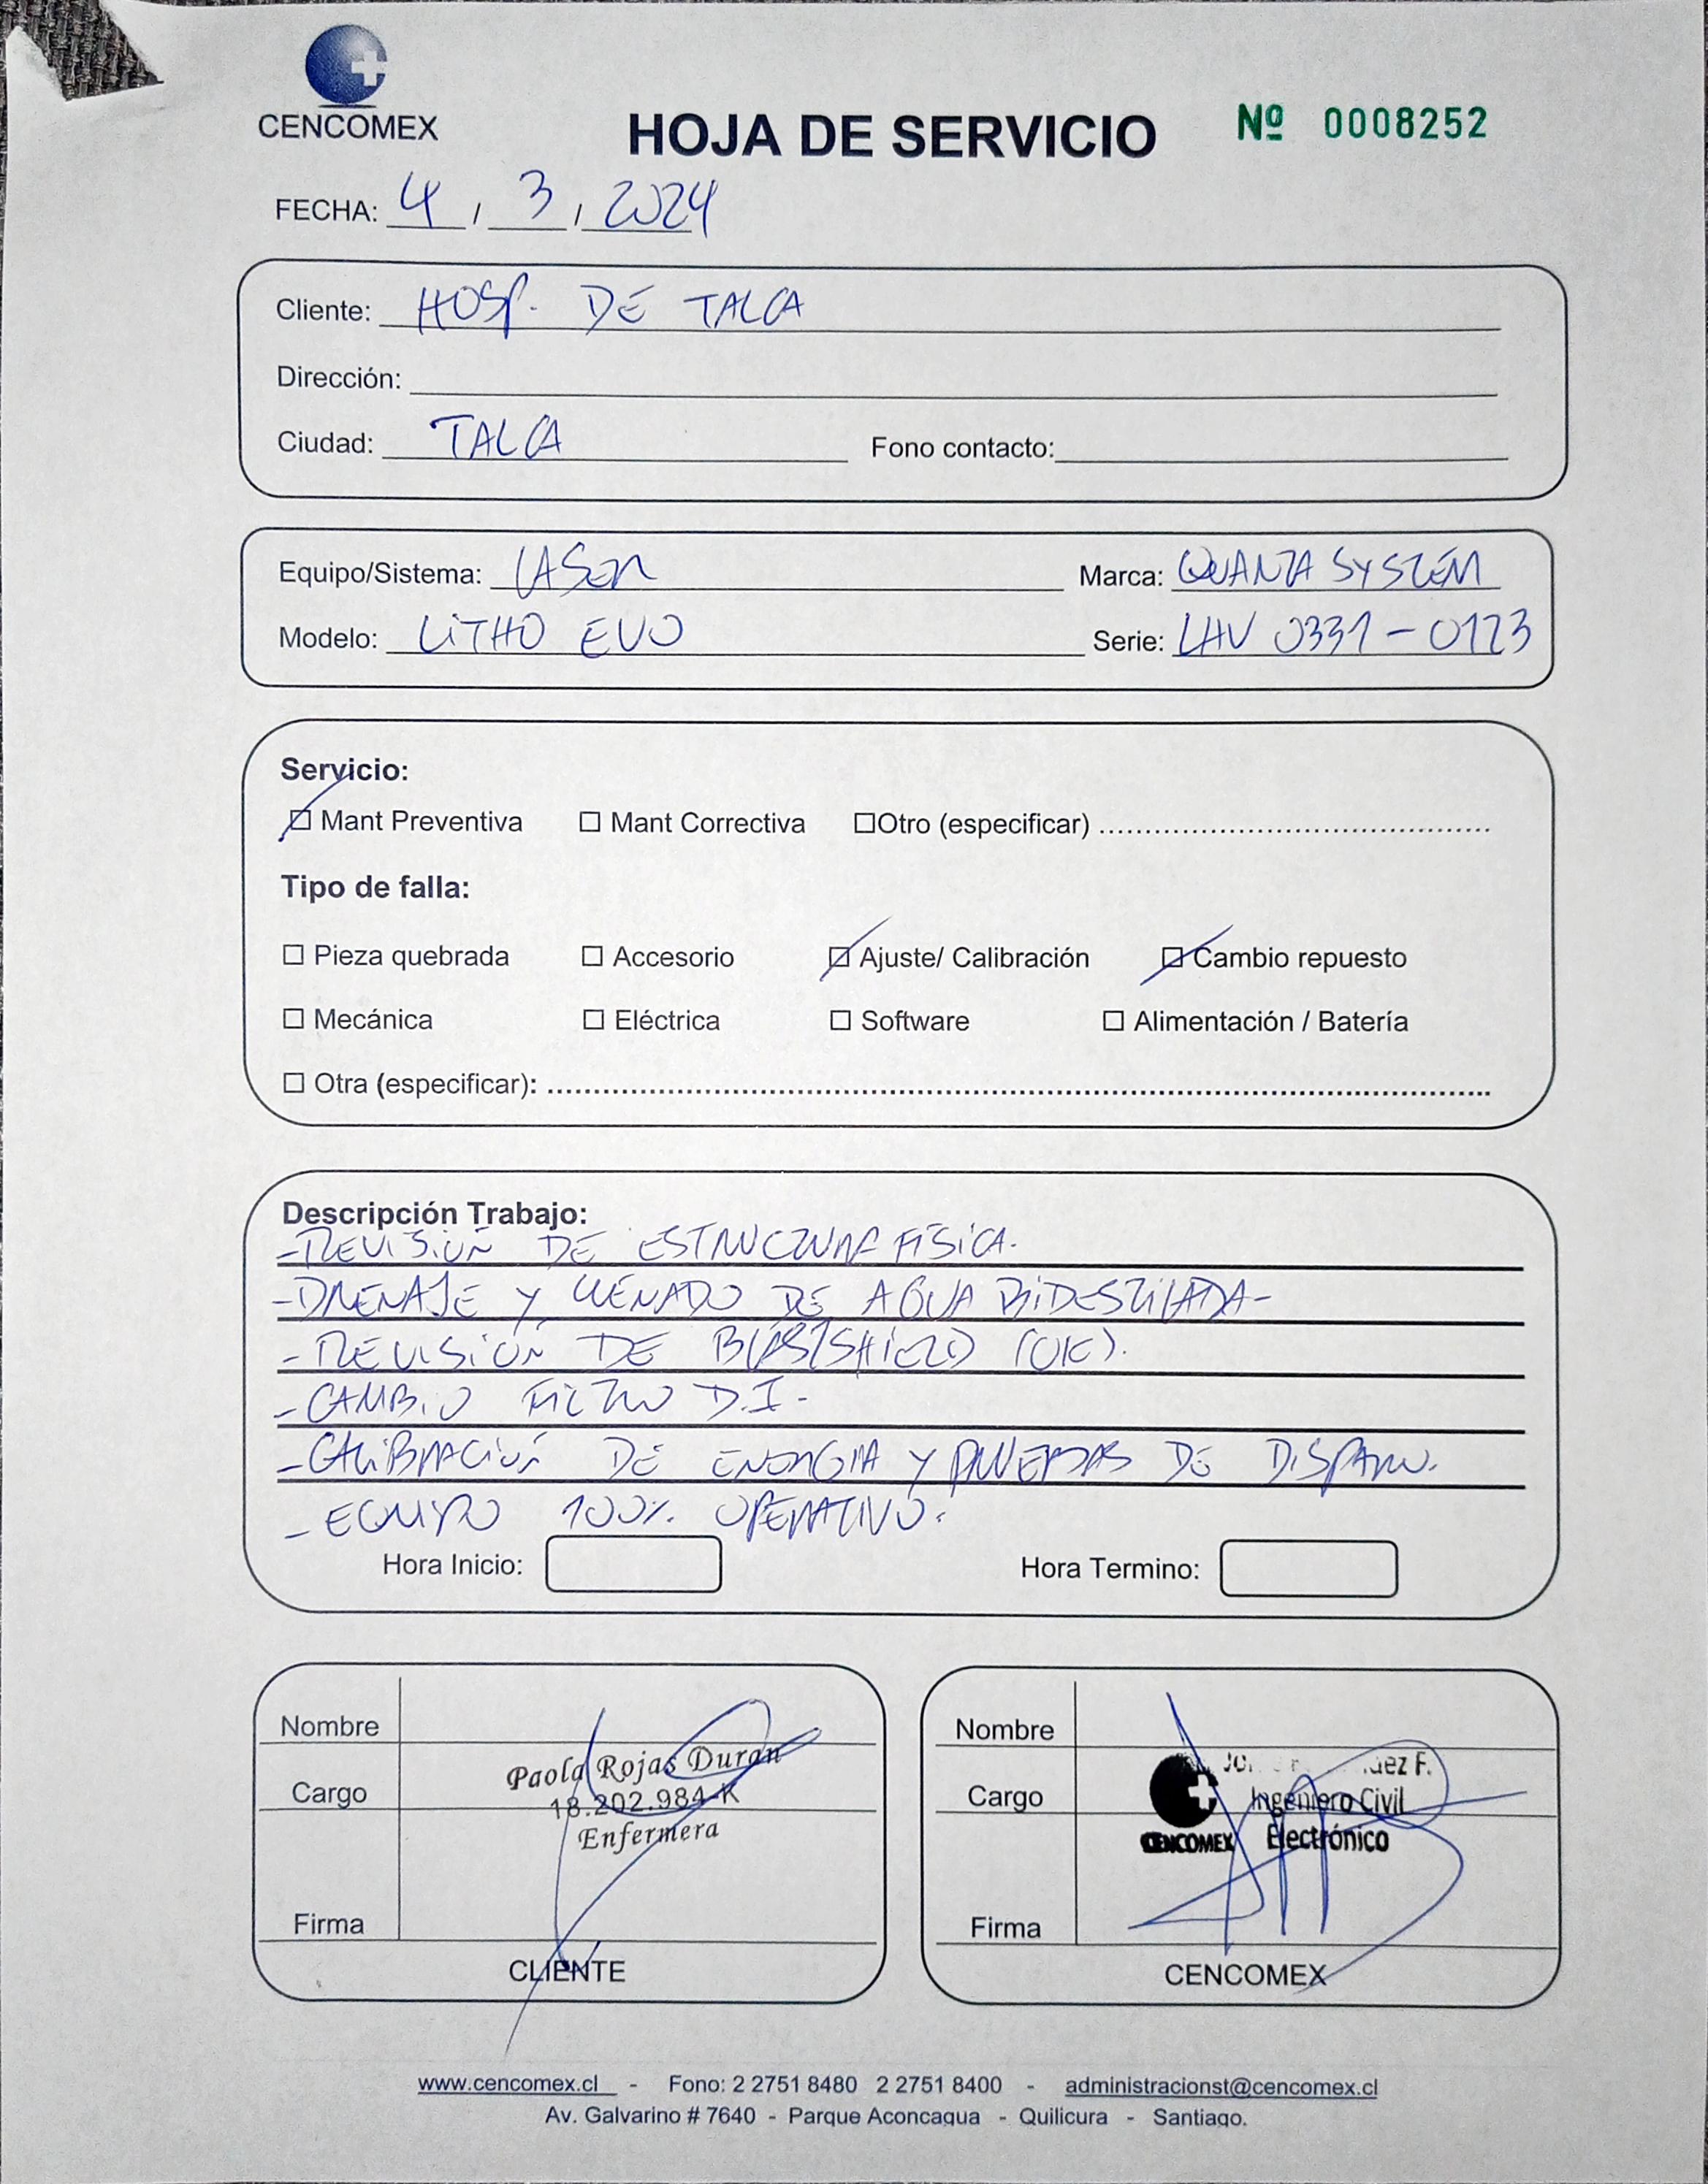 CENCOMEX
HOJA DE SERVICIO Nº 0008252
FECHA: 4 / 3 / 2024
Cliente: HOSP. DE TALCA
Dirección:
Ciudad: TALCA Fono contacto:
Equipo/Sistema: LASER Marca: QUANTA SYSTEM
Modelo: LITHO EVO Serie: LHV 0331-0123
Servicio:
Mant Preventiva Mant Correctiva Otro (especificar)
Tipo de falla:
Pieza quebrada Accesorio Ajuste/ Calibración Cambio repuesto
Mecánica Eléctrica Software Alimentación / Batería
Otra (especificar):
Descripción Trabajo:
- REVISIÓN DE ESTRUCTURA FÍSICA.
- DRENAJE Y LLENADO DE AGUA BIDESTILADA-
- REVISIÓN DE BLASTSHIELD (OK).
- CAMBIO FILTRO D.I-
- CALIBRACIÓN DE ENERGIA Y PRUEBAS DE DISPARO.
- EQUIPO 100% OPERATIVO.
Hora Inicio: Hora Termino:
Nombre
Cargo
Paola Rojas Duran
18.202.984-K
Enfermera
Firma
CLIENTE
Nombre
Cargo
F.
Ingeniero Civil
CENCOMEX Electrónico
Firma
CENCOMEX
www.cencomex.cl - Fono: 2 2751 8480 2 2751 8400 - administracionst@cencomex.cl
Av. Galvarino # 7640 - Parque Aconcagua - Quilicura - Santiago.